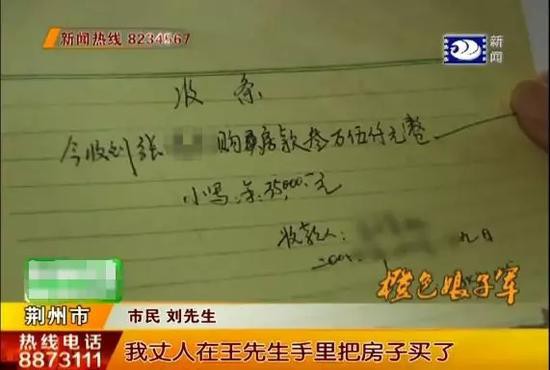 新闻热线 8234567
新闻
收条
今收到张 购房款叁万伍仟元整
小写:35000.—元
收款人:
九日
橙色娘子军
荆州市
市民 刘先生
热线电话
8873111
我丈人在王先生手里把房子买了